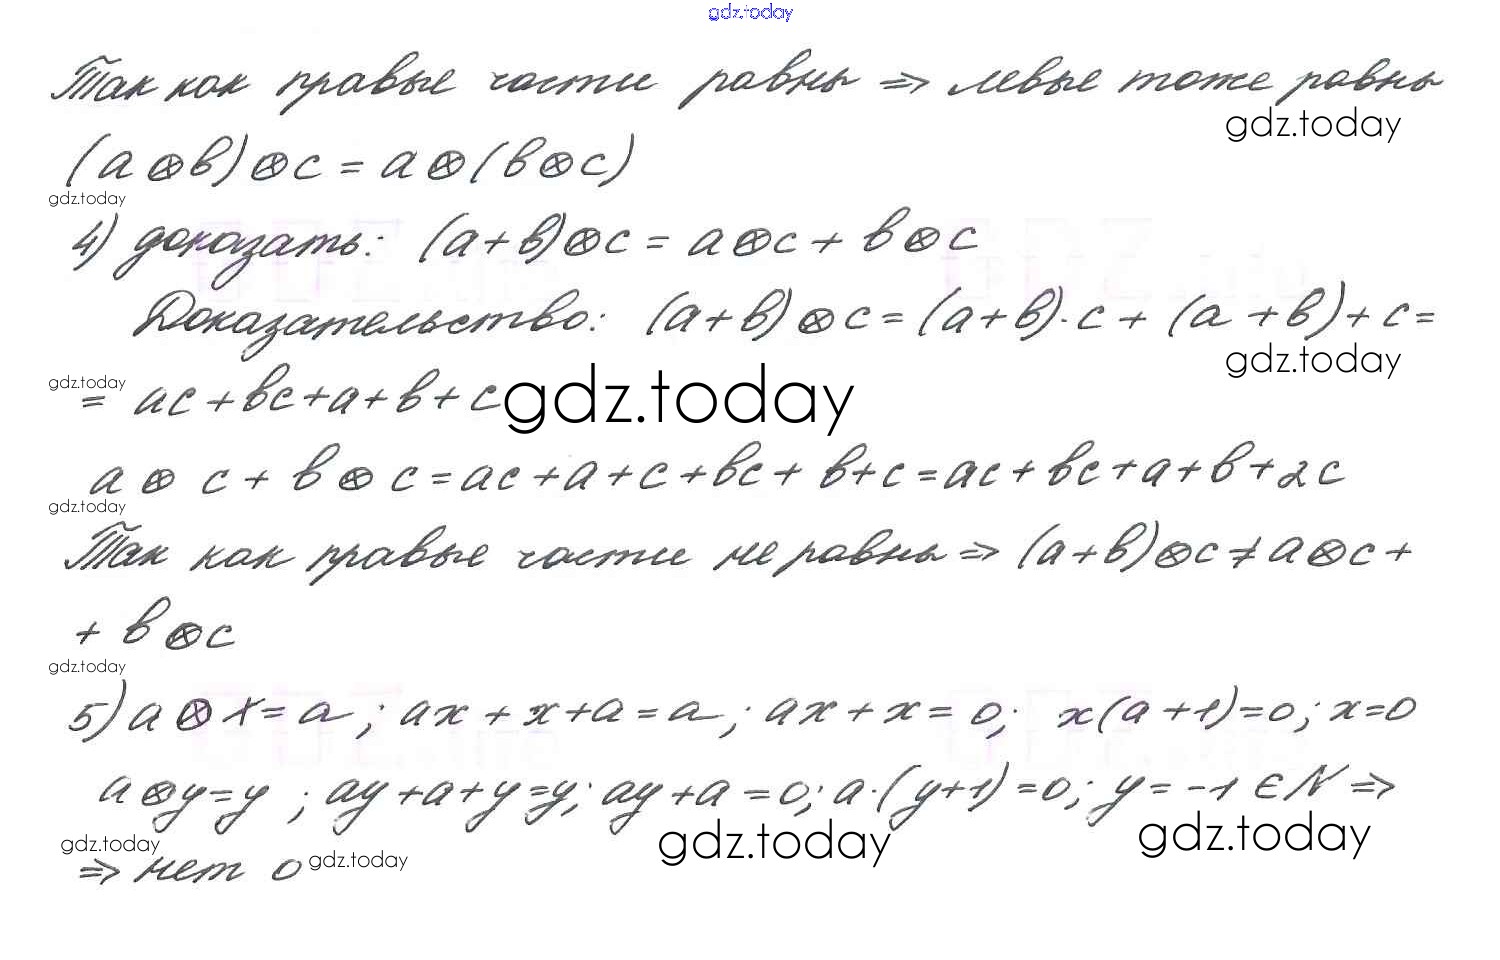 gdz.today
Так как правые части равны => левые тоже равны
gdz.today
(a⊗в)⊗c = a⊗(в⊗c)
gdz.today
4) доказать: (a+в)⊗c = a⊗c + в⊗c
Доказательство: (a+в)⊗c = (a+в)·c + (a+в)+c =
gdz.today
gdz.today
= ac+вc+a+в+c
gdz.today
a⊗c + в⊗c = ac+a+c+вc+в+c = ac+вc+a+в+2c
gdz.today
Так как правые части не равны => (a+в)⊗c ≠ a⊗c +
+ в⊗c
gdz.today
5) a⊗x=a; ax+x+a=a; ax+x=0; x(a+1)=0; x=0
a⊗y=y; ay+a+y=y; ay+a=0; a·(y+1)=0; y=-1 ∈ N =>
gdz.today
gdz.today
gdz.today
=> нет 0
gdz.today